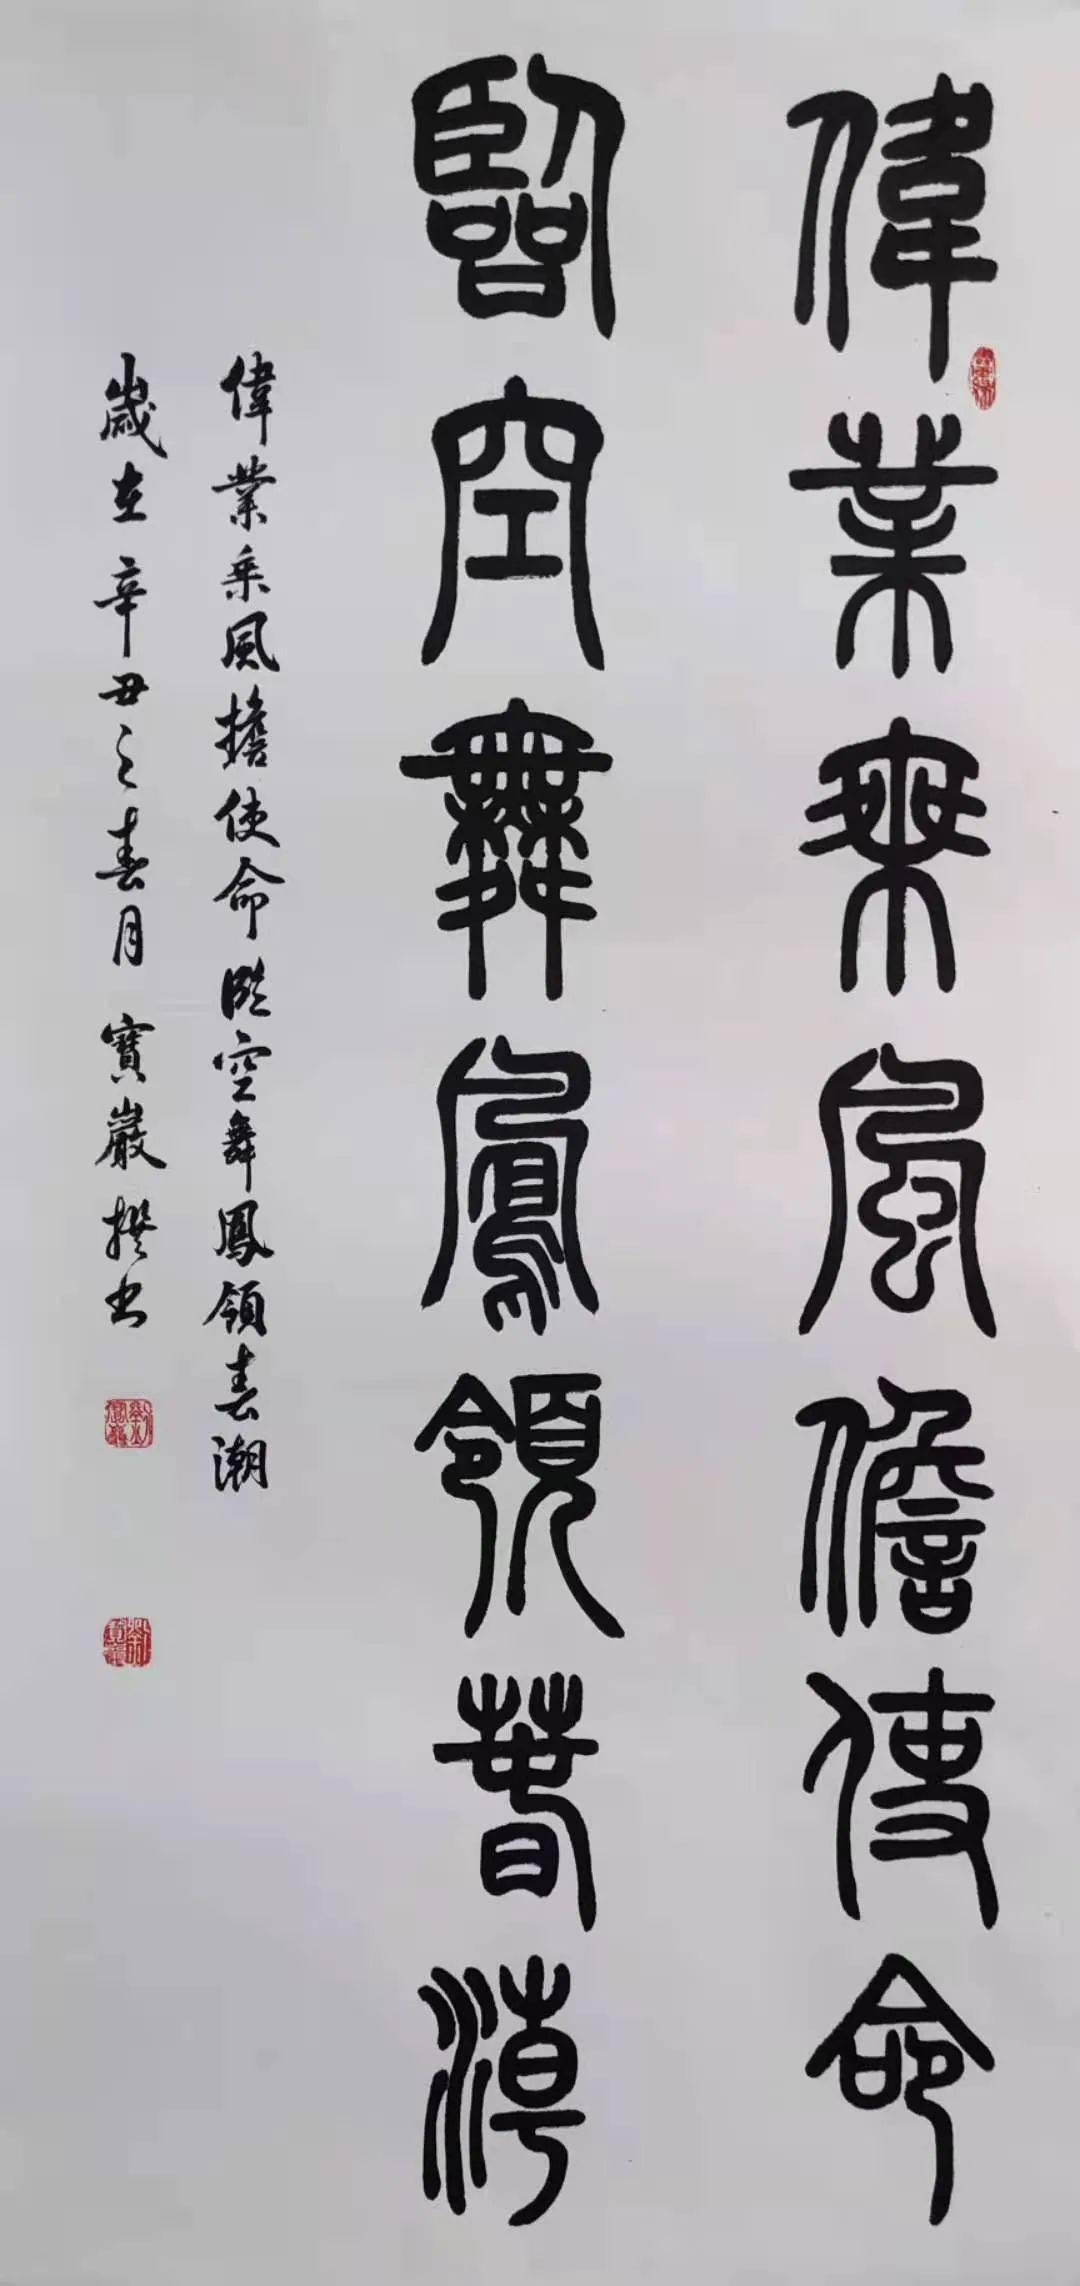 偉業乘風擔使命
臨空舞鳳領春潮
偉業乘風擔使命臨空舞鳳領春潮
歲在辛丑之春月寶巖撰書